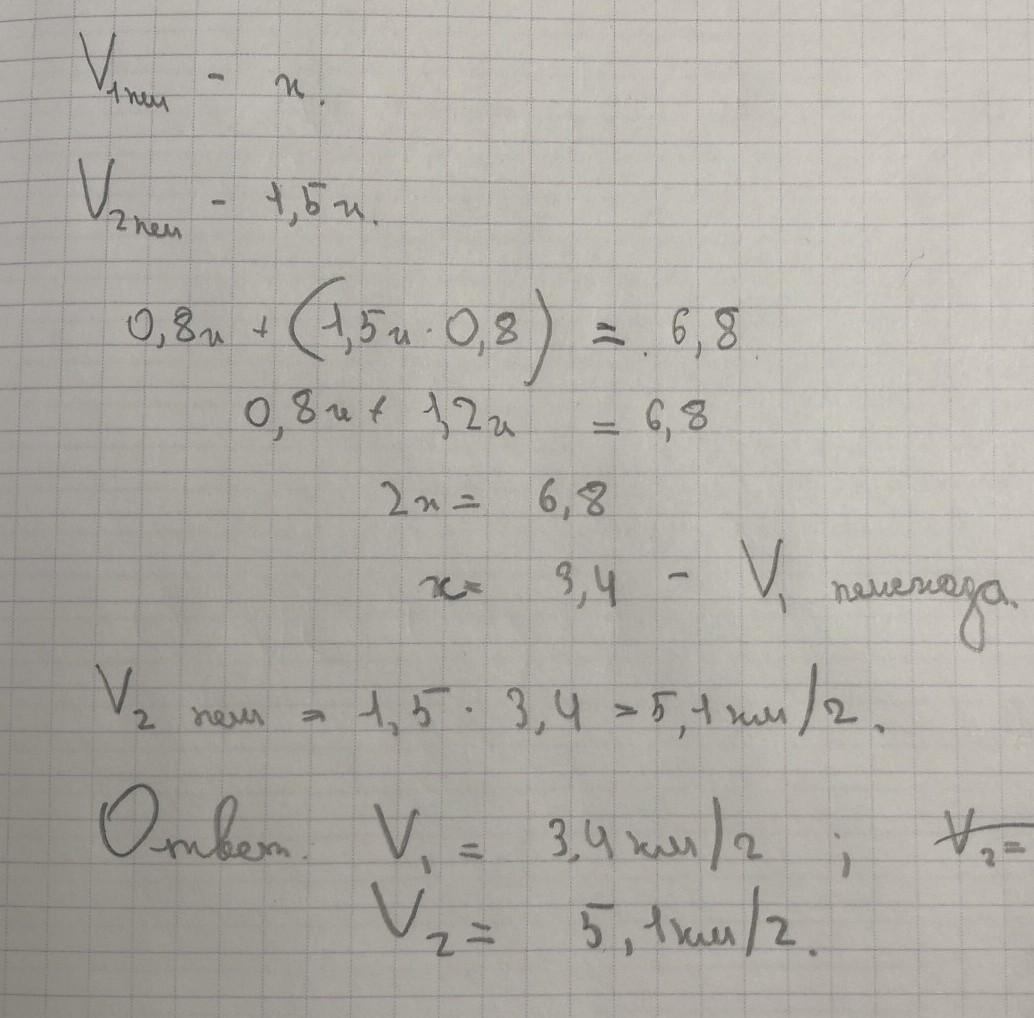 V₁ пеш - x.
V₂ пеш - 1,5x.
0,8x + (1,5x · 0,8) = 6,8
0,8x + 1,2x = 6,8
2x = 6,8
x = 3,4 - V₁ пешехода.
V₂ пеш = 1,5 · 3,4 = 5,1 км/г.
Ответ. V₁ = 3,4 км/г ; V₂ =
V₂ = 5,1 км/г.